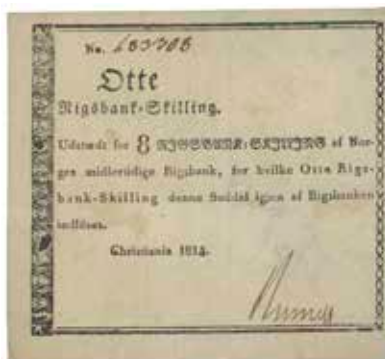 No. 183708
Otte
Rigsbank-Skilling.
Udstædt for 8 RIGSBANK-SKILLING af Nor-
ges midlertidige Rigsbank, for hvilke Otte Rigs-
bank-Skilling denne Seddel igjen af Rigsbanken
indløses.
Christiania 1814.